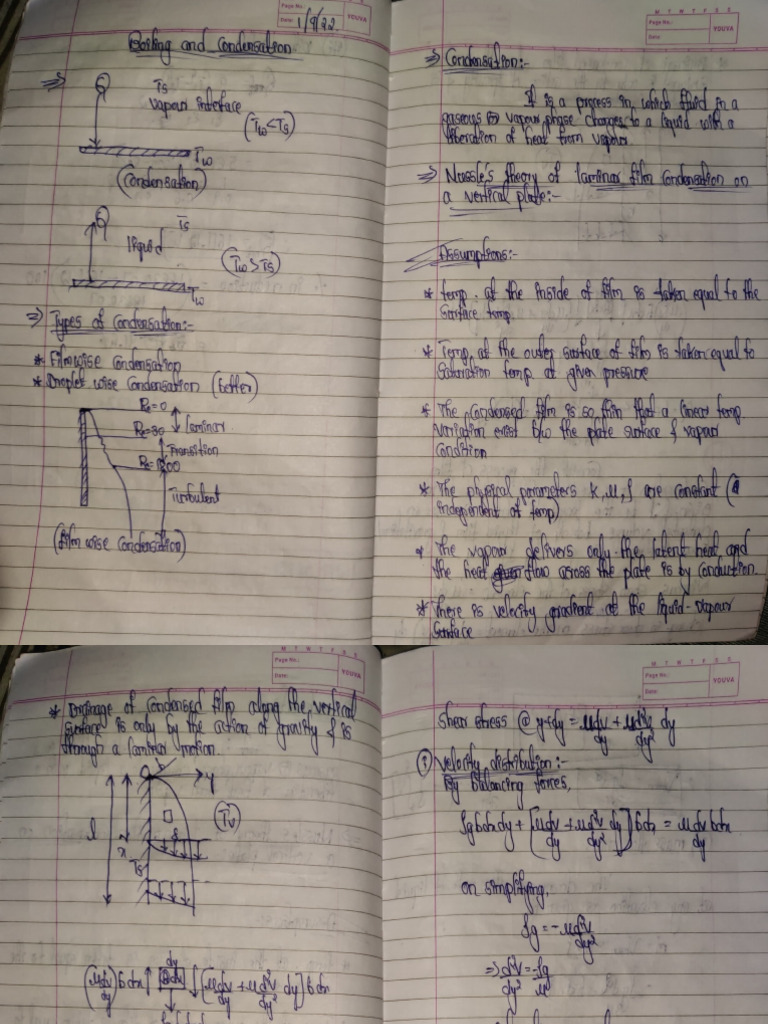 Page No.:
Date: 1/9/22.
YOUVA
Boiling and Condensation
⇒ Ts
Vapour interface
(Tw<Ts)
Tw
(Condensation)
Ts
liquid
(Tw>Ts)
Tw
⇒ Types of Condensation:-
* Filmwise Condensation
* Droplet wise Condensation (better)
Re=0
laminar
Re=30
Transition
Turbulent
(film wise Condensation)
M T W T F S S
Page No.:
Date:
YOUVA
⇒ Condensation:-
It is a process in which fluid in a
gaseous or vapour phase changes to a liquid with a
liberation of heat from vapour
⇒ Nusslet's theory of laminar film condensation on
a vertical plate:-
Assumptions:-
* temp. at the inside of film is taken equal to the
surface temp.
* Temp. at the outer surface of film is taken equal to
Saturation temp at given pressure
* The Condensed film is so thin that a linear temp.
Variation exist b/w the plate surface & vapour
Condition
* The physical parameters K, μ, ρ are constant (
independent of temp)
* The vapour delivers only the latent heat and
the heat flow across the plate is by conduction.
* There is velocity gradient at the liquid-vapour
Surface
M T W T F S S
Page No.:
Date:
YOUVA
* Drainage of Condensed film along the vertical
surface is only by the action of gravity & is
through a laminar motion.
b
y
l
x
δ
Ts
(Tv)
dy
(μdv/dy) bdx ↑ ↓ [μdv/dy + μd²v/dy² dy] bdx
M T W T F S S
Page No.:
Date:
YOUVA
Shear stress @ y+dy = μdv/dy + μd²v/dy² dy
① Velocity distribution:-
By balancing forces,
ρgbdxdy + [μdv/dy + μd²v/dy² dy] bdx = μdv/dy bdx
on simplifying,
ρg = -μd²v/dy²
⇒ d²v/dy² = -ρg/μ